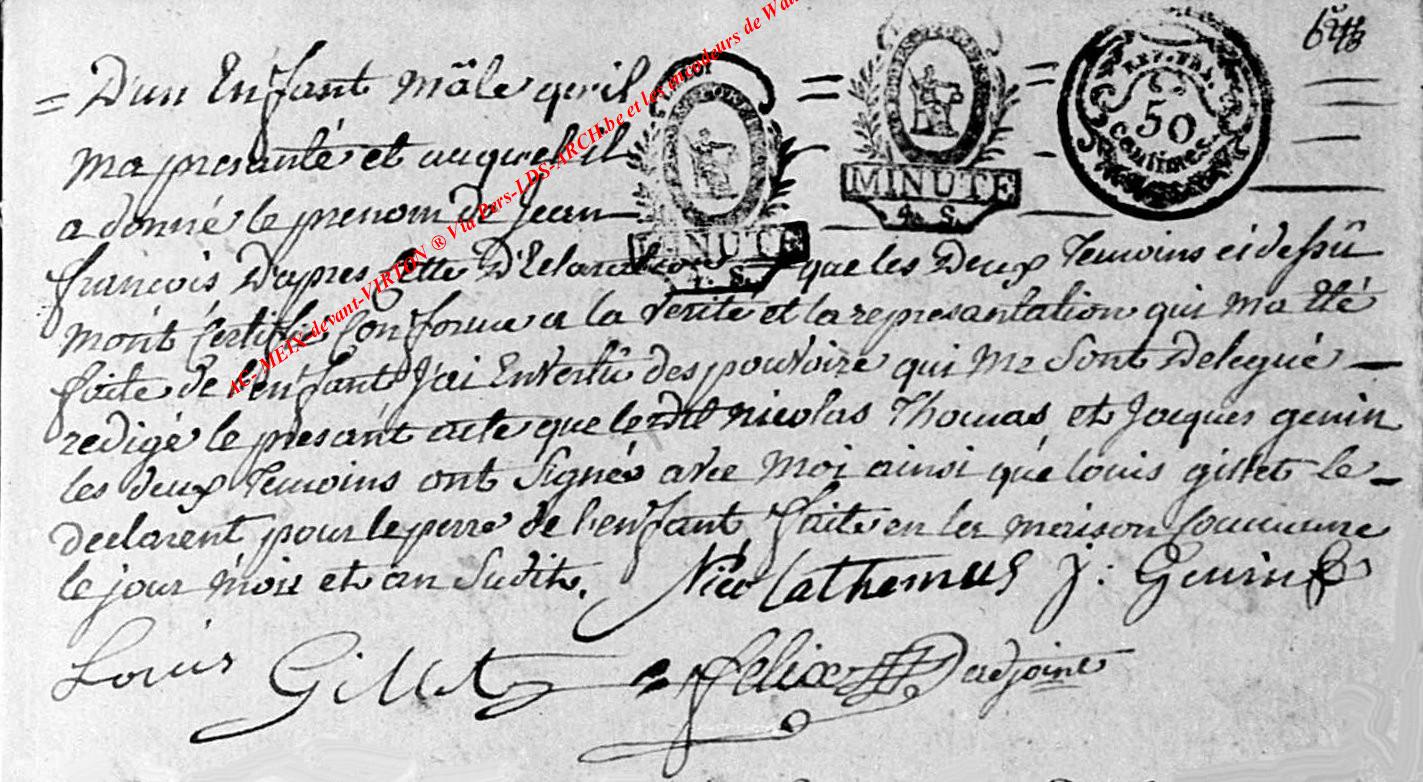 6
= D'un Enfant Mâle qu'il = =
ma presanté et auquel il
a donné le prenom de Jean —
françois D'apres Cette D'Eclaration que les Deux Temoins ci dessû
mônt Certifié Conforme a la Verité et la represantation qui ma été
faite de l'enfant J'ai En Vertû des pouvoire qui Me Sont Delegué —
redigé le présant acte que ledit nicolas Thomas et Jacques genin
les deux Temoins ont Signés avec Moi ainsi que louis gillet le —
declarent pour le perre de l'enfant, faite en la maison Commune
le jour mois et an Sudit. Nicolathemus J: Genin
Louis Gillet felix adjoint
MINUTE
MINUTE
4. S.
REP. FRA.
50
Centimes.
AC- MEIX-devant-VIRTON ® Via Pers-LDS-ARCH.be et les encodeurs de